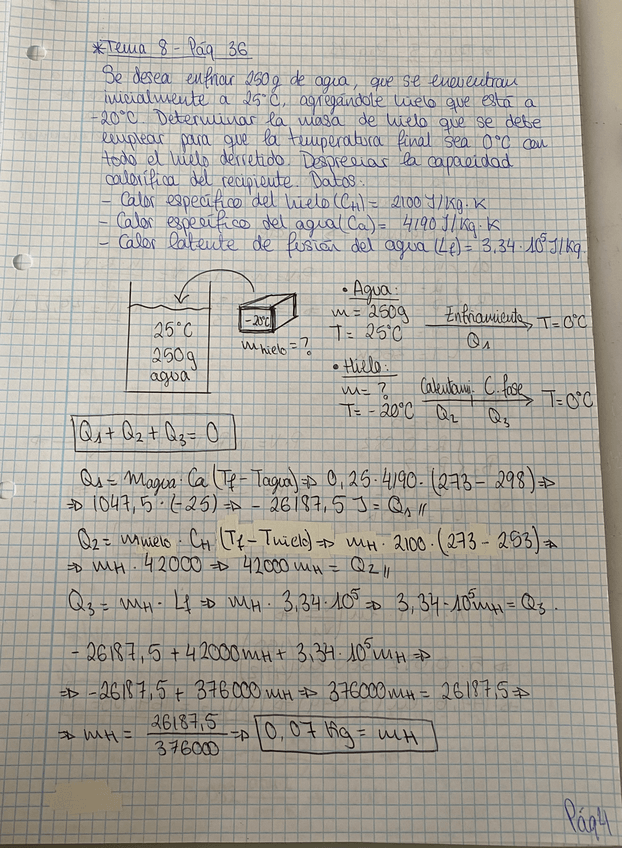 *Tema 8 - Pág 36
Se desea enfriar 250g de agua, que se encuentran
inicialmente a 25°C, agregándole hielo que está a
-20°C. Determinar la masa de hielo que se debe
emplear para que la temperatura final sea 0°C con
todo el hielo derretido. Despreciar la capacidad
calorífica del recipiente. Datos:
- Calor específico del hielo (CH) = 2100 J/Kg·K
- Calor específico del agua (Ca) = 4190 J/Kg·K
- Calor latente de fusión del agua (Lf) = 3,34·10⁵ J/Kg.
25°C
250g
agua
-20°C
m hielo = ?
• Agua:
m = 250g
T = 25°C
Enfriamiento
Q1
T = 0°C
• Hielo:
m = ?
T = -20°C
Calentam. C. fase
Q2 Q3
T = 0°C
Q1 + Q2 + Q3 = 0
Q1 = magua · Ca (Tf - Tagua) ⇒ 0,25·4190·(273 - 298) ⇒
⇒ 1047,5·(-25) ⇒ - 26187,5 J = Q1 //
Q2 = mhielo · CH (Tf - Thielo) ⇒ mH · 2100·(273 - 253) ⇒
⇒ mH · 42000 ⇒ 42000 mH = Q2 //
Q3 = mH · Lf ⇒ mH · 3,34·10⁵ ⇒ 3,34·10⁵ mH = Q3.
- 26187,5 + 42000 mH + 3,34·10⁵ mH ⇒
⇒ -26187,5 + 376000 mH ⇒ 376000 mH = 26187,5 ⇒
⇒ mH = 26187,5 / 376000 ⇒ 0,07 Kg = mH
Pág 4